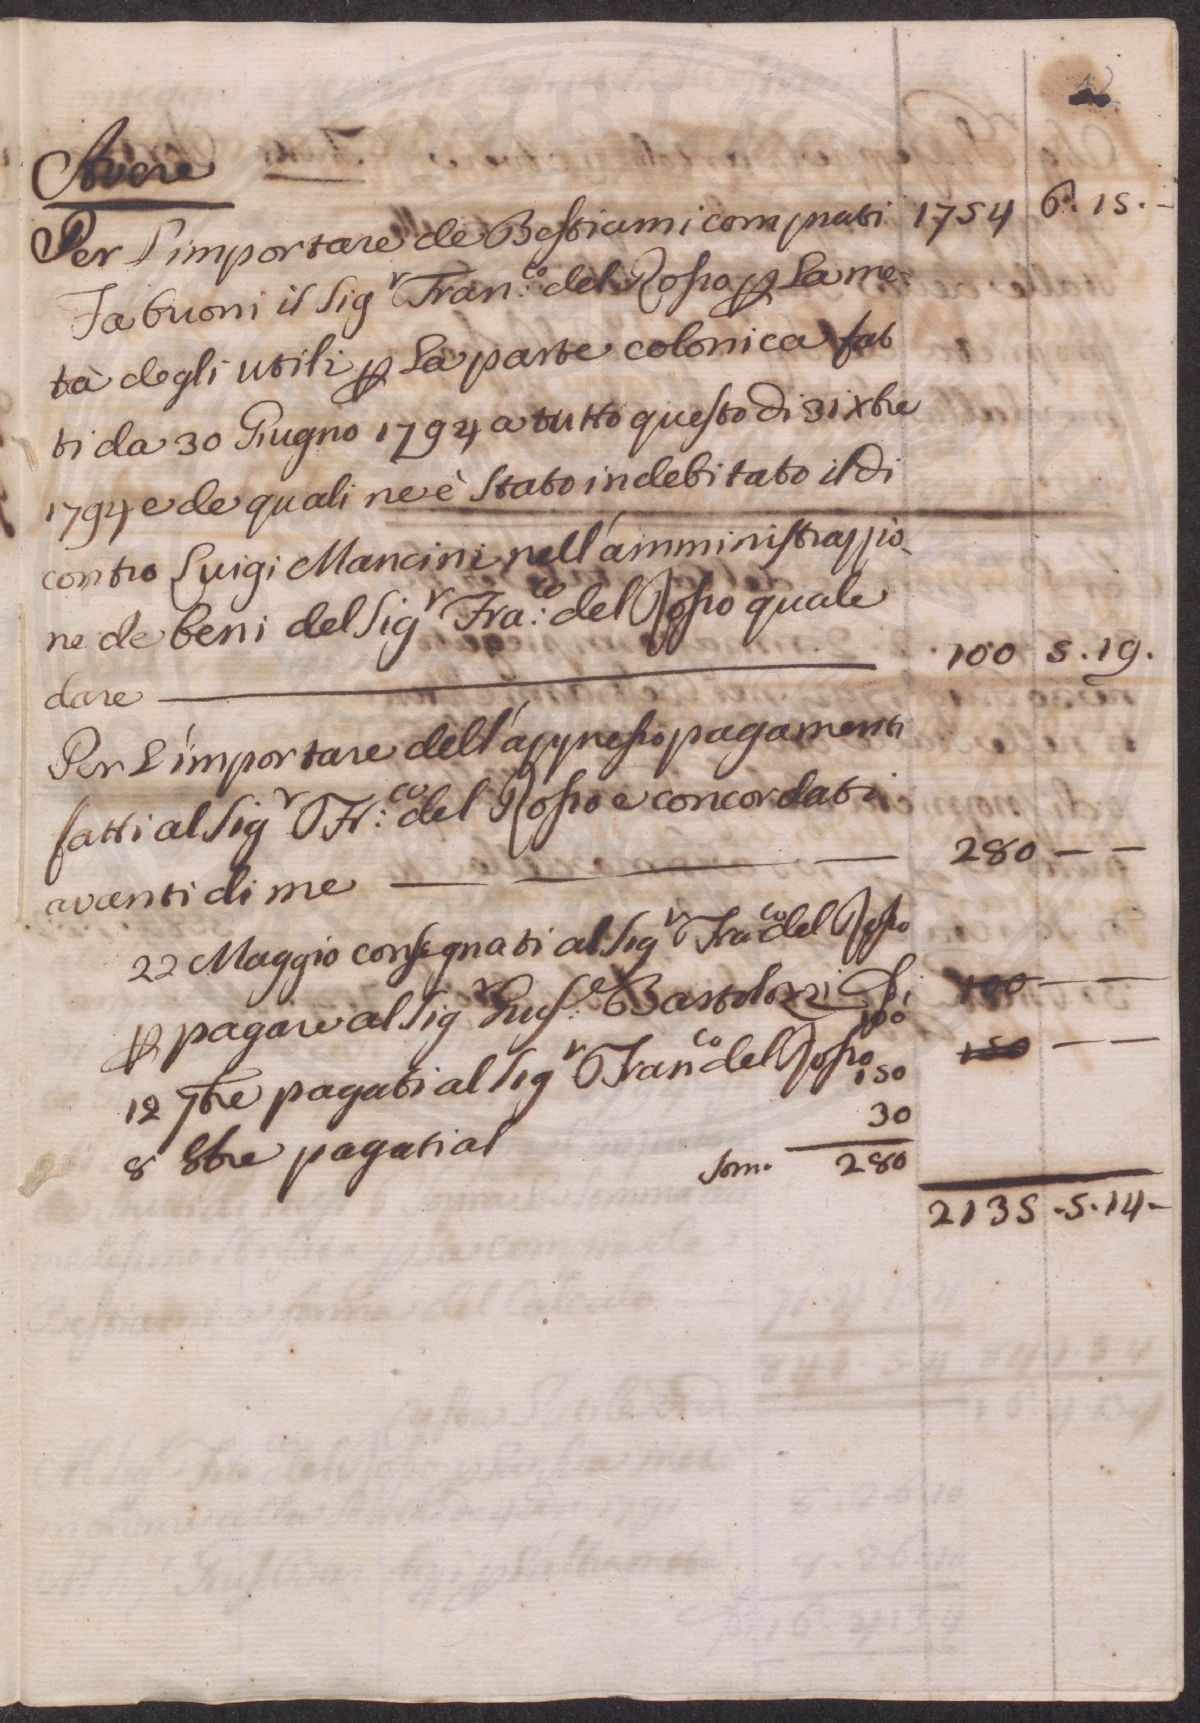 Avere
Per L'importare de Bestiami comprati 1754 6.15.-
Fa buoni il Sig.r Fran.co del Rosso p La me=
tà degli utili p La parte colonica fat
ti da 30 Giugno 1794 a tutto questo dì 31 Xbre
1794 e de quali ne è Stato indebitato il dì
contro Luigi Mancini nell'amministrazzio=
ne de beni del Sig.r Fra.co del Rosso quale
dare 100 5.19.
Per L'importare dell'appresso pagamenti
fatti al Sig.r Fr.co del Rosso e concordati
avanti di me 280 - -
22 Maggio consegnati al Sig.r Fra.co del Rosso
p pagare al Sig.r Gius.e Bartolozzi 100 100 - -
12 7bre pagati al Sig.r Fran.co del Rosso 150 150 - -
8 8bre pagati al 30
Som. 280
2135.5.14-